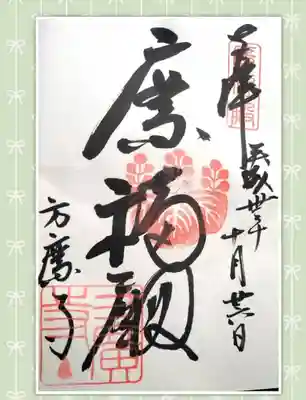 奉拝
平成卅年十月廿日
廣福殿
方廣寺